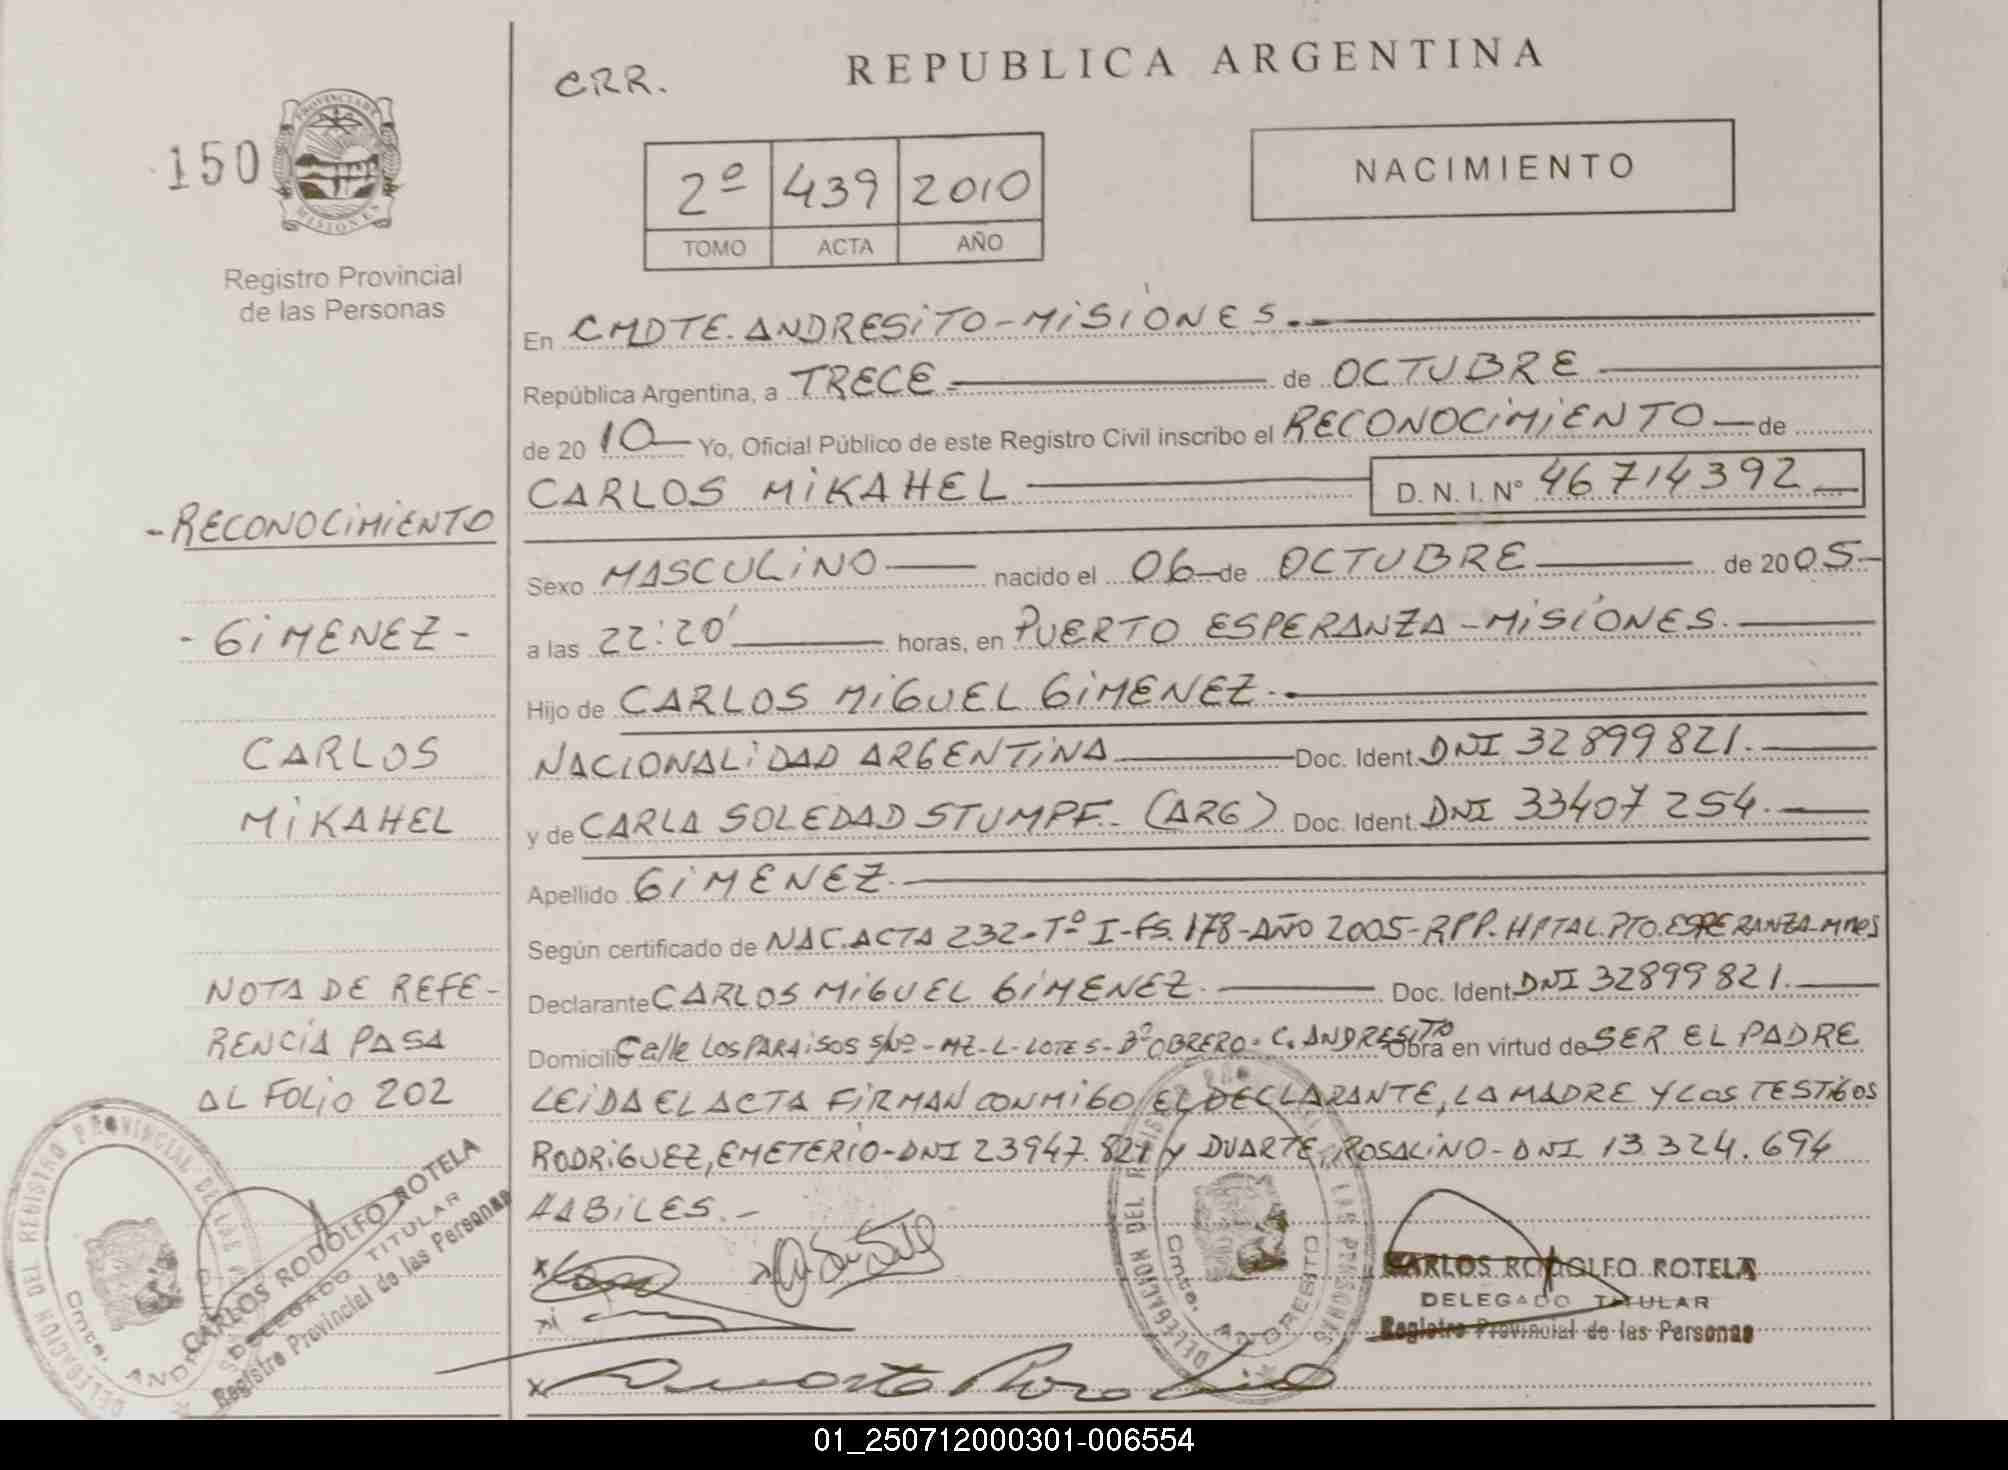 CRR.
REPUBLICA ARGENTINA
150
PROVINCIA DE
MISIONES
Registro Provincial
de las Personas
2º 439 2010
TOMO ACTA AÑO
NACIMIENTO
En CMDTE. ANDRESITO - MISIONES.-
República Argentina, a TRECE de OCTUBRE
de 2010 Yo, Oficial Público de este Registro Civil inscribo el RECONOCIMIENTO de
CARLOS MIKAHEL D. N. I. Nº 46714392
Sexo MASCULINO nacido el 06 de OCTUBRE de 2005-
a las 22:20' horas, en PUERTO ESPERANZA - MISIONES.
Hijo de CARLOS MIGUEL GIMENEZ.-
NACIONALIDAD ARGENTINA Doc. Ident. DNI 32899821.
y de CARLA SOLEDAD STUMPF. (ARG) Doc. Ident. DNI 33407254.
Apellido GIMENEZ.
Según certificado de NAC. ACTA 232 - Tº I - FS. 178 - AÑO 2005 - RPP. HPTAL. PTO. ESPERANZA - Mnes
Declarante CARLOS MIGUEL GIMENEZ. Doc. Ident. DNI 32899821.
Domicilio Calle LOS PARAISOS S/Nº - MZ - L - LOTE 5 - Bº OBRERO - C. ANDRESITO Obra en virtud de SER EL PADRE
LEIDA EL ACTA FIRMAN CONMIGO EL DECLARANTE, LA MADRE Y LOS TESTIGOS
RODRIGUEZ, EMETERIO - DNI 23947.821 y DUARTE, ROSALINO - DNI 13.324.694
HABILES.-
- RECONOCIMIENTO
- GIMENEZ -
CARLOS
MIKAHEL
NOTA DE REFE-
RENCIA PASA
AL FOLIO 202
DELEGACION DEL REGISTRO PROVINCIAL DE LAS
Cmte. AND
CARLOS RODOLFO ROTELA
DELEGADO TITULAR
Registro Provincial de las Personas
DELEGACION DEL
LAS PERSONAS
Cmte. ANDRESITO
CARLOS RODOLFO ROTELA
DELEGADO TITULAR
Registro Provincial de las Personas
01_250712000301-006554